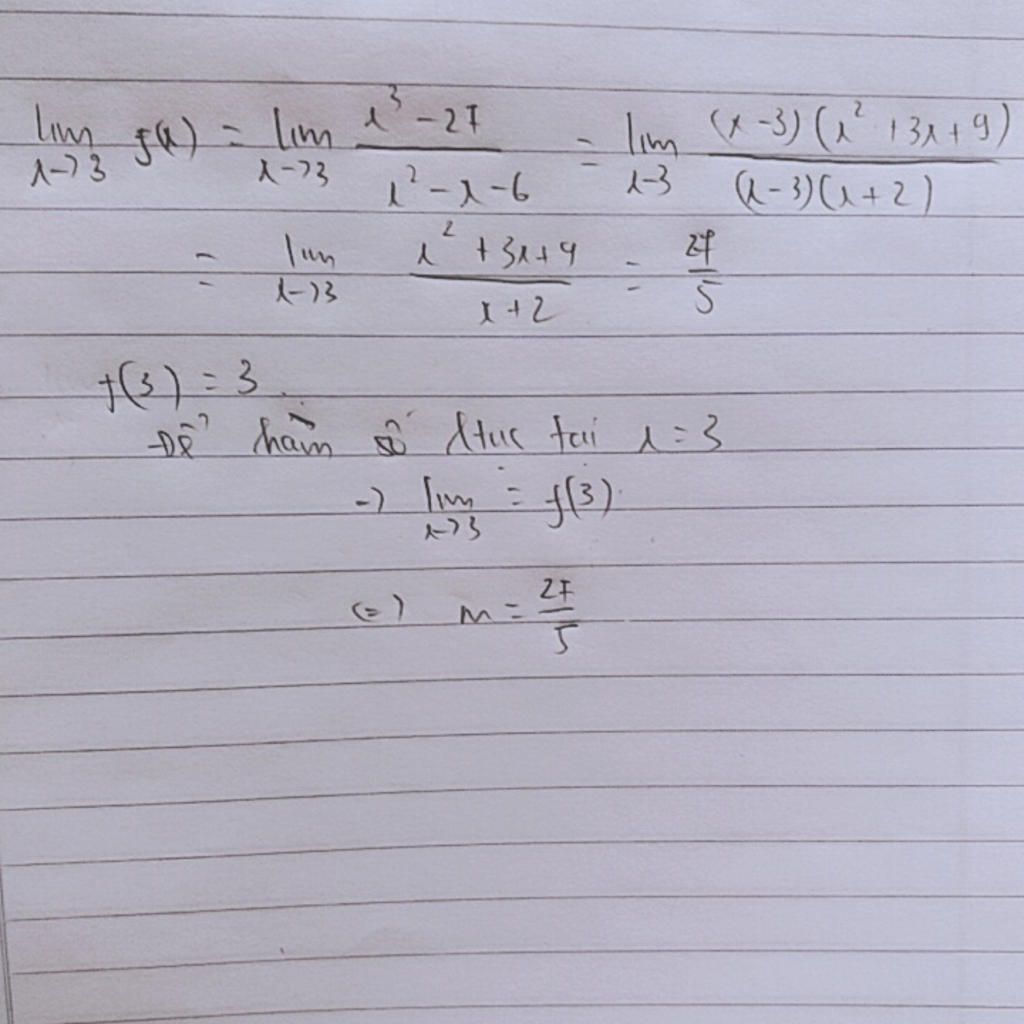 lim x->3 f(x) = lim x->3 (x^3 - 27)/(x^2 - x - 6) = lim x-3 ((x-3)(x^2 + 3x + 9))/((x-3)(x+2))
= lim x->3 (x^2 + 3x + 9)/(x + 2) = 27/5
f(3) = 3
Để hàm số ltục tại x = 3
-> lim x->3 = f(3).
<=> m = 27/5